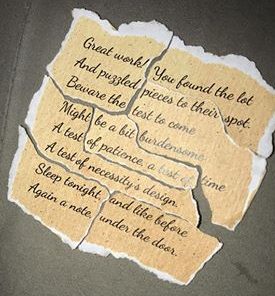 Great work! You found the lot
And puzzled pieces to their spot.
Beware the test to come
Might be a bit burdensome
A test of patience, a test of time
A test of necessity's design.
Sleep tonight, and like before
Again a note, under the door.